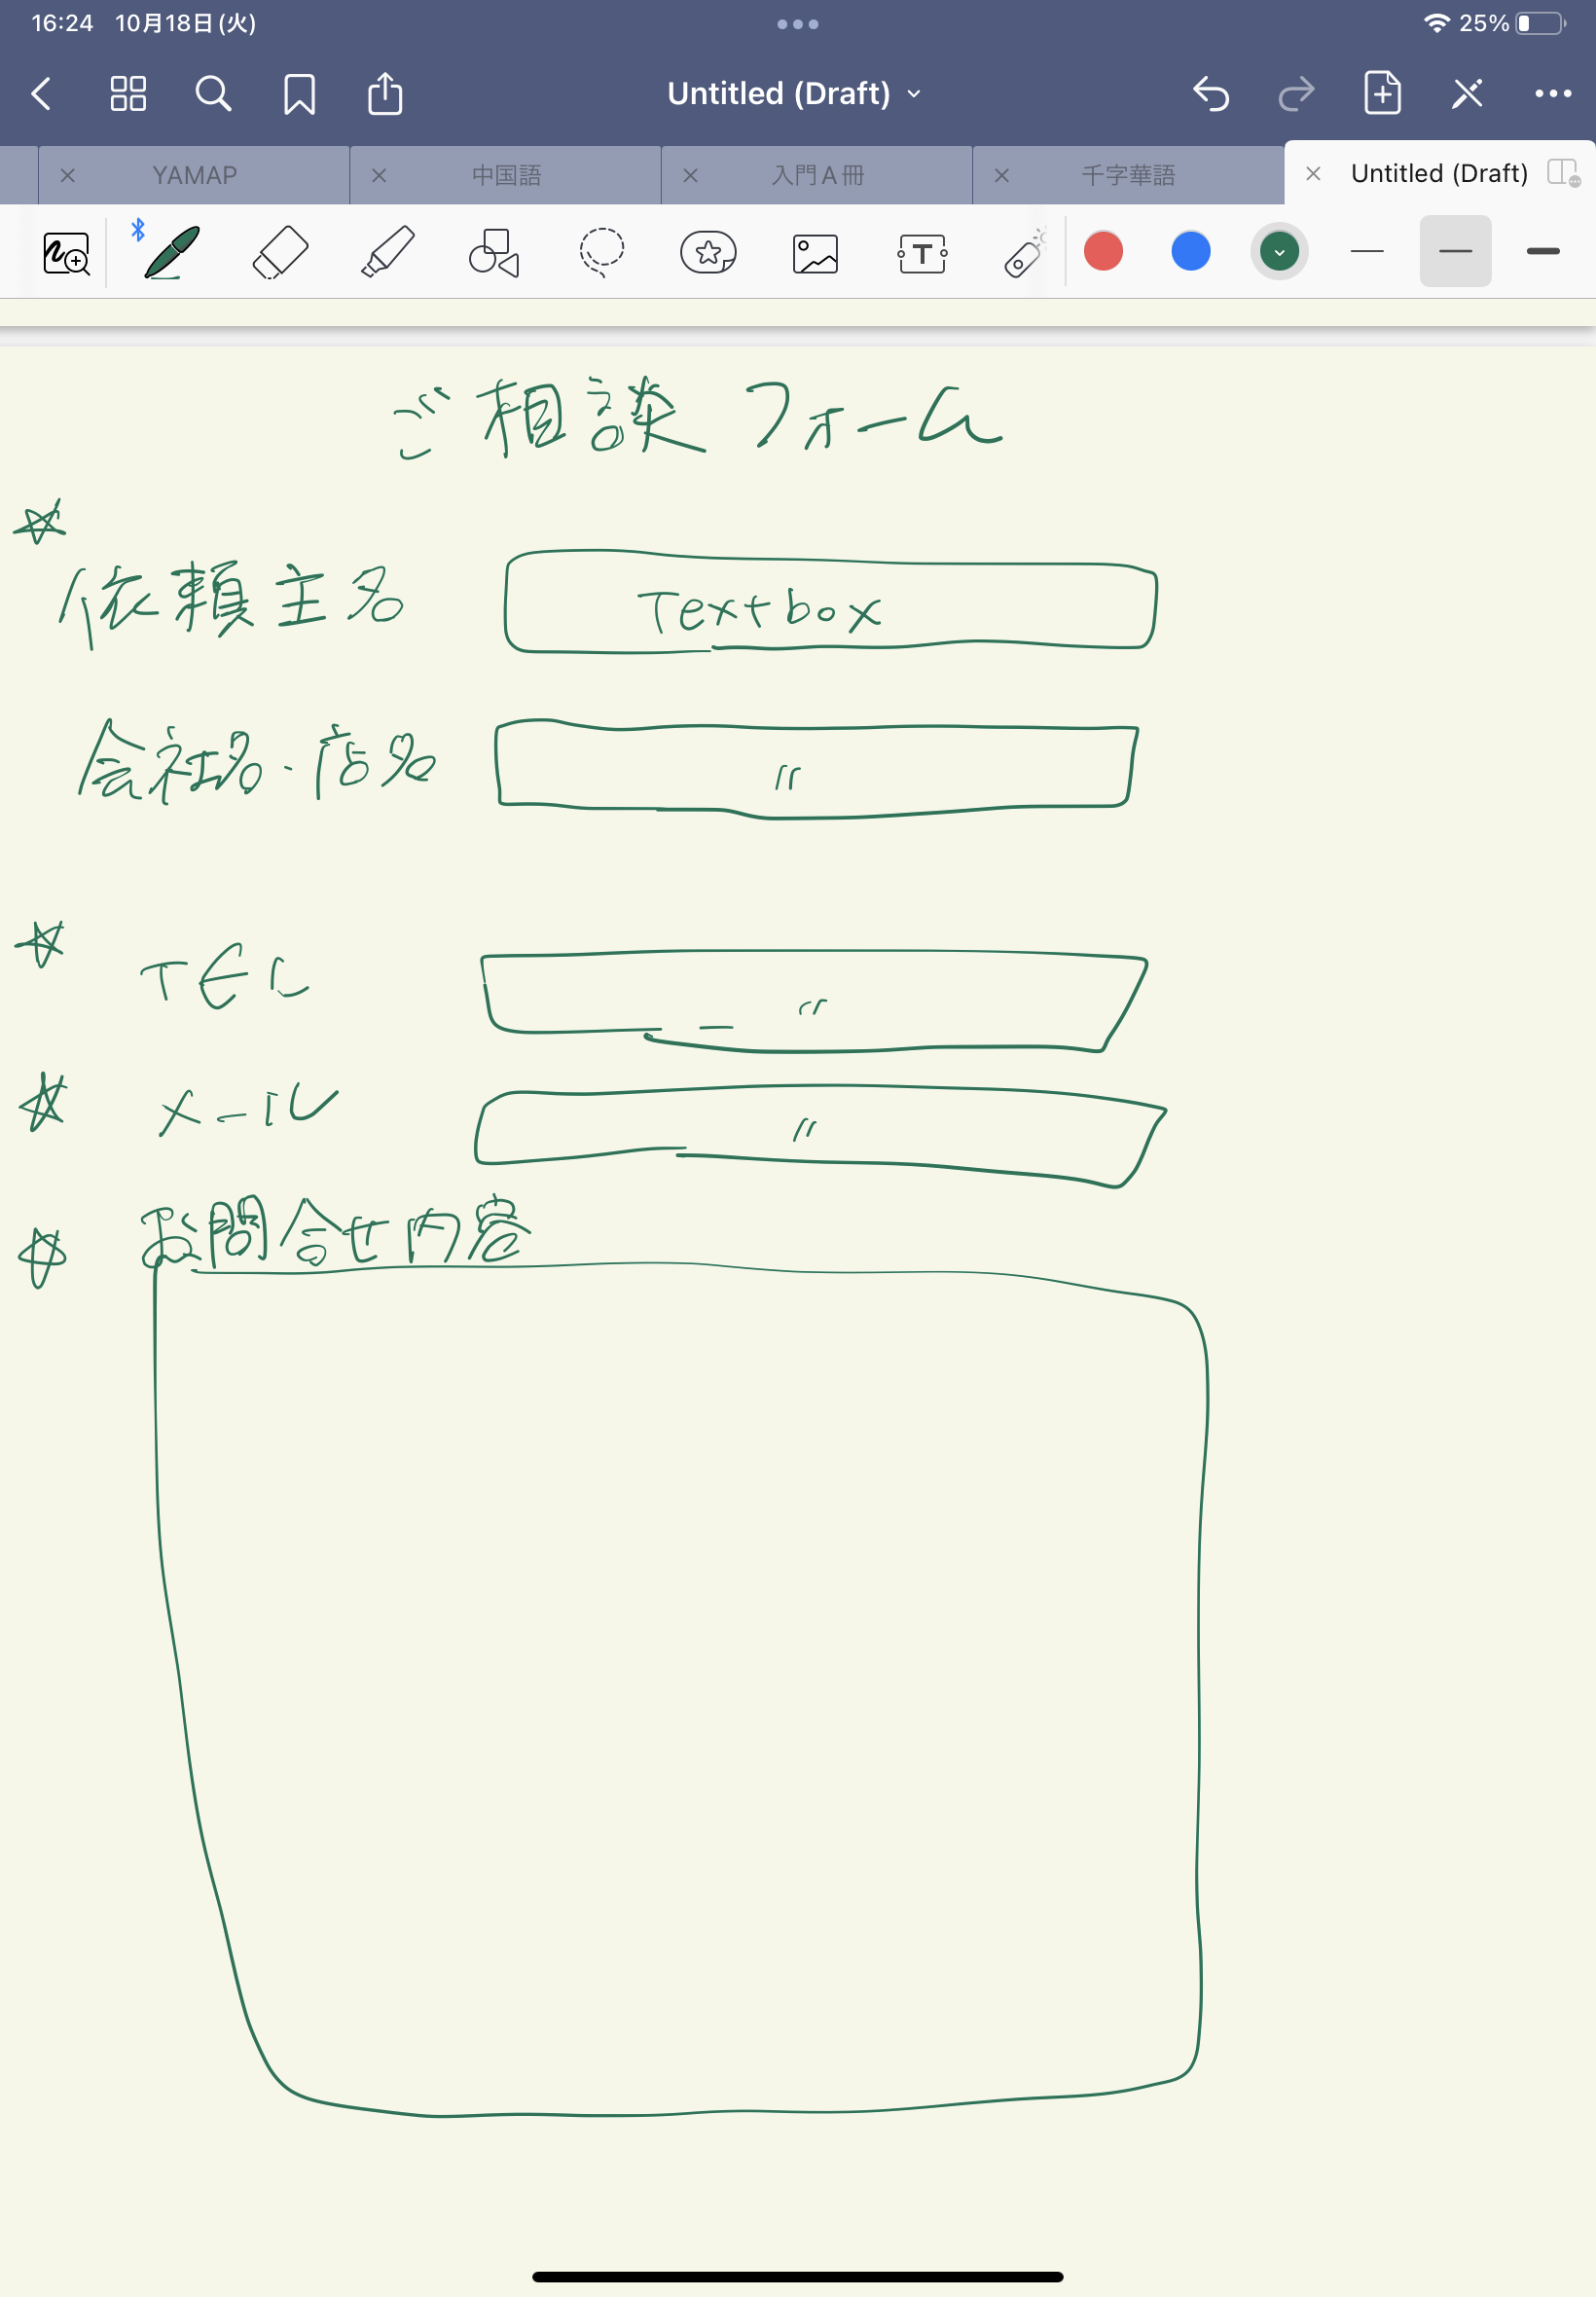 16:24 10月18日(火) 25%
Untitled (Draft)
YAMAP 中国語 入門A冊 千字華語 Untitled (Draft)
T
ご相談フォーム
☆
依頼主名 Textbox
会社名・店名 〃
☆ TEL 〃
☆ メール 〃
☆ お問合せ内容